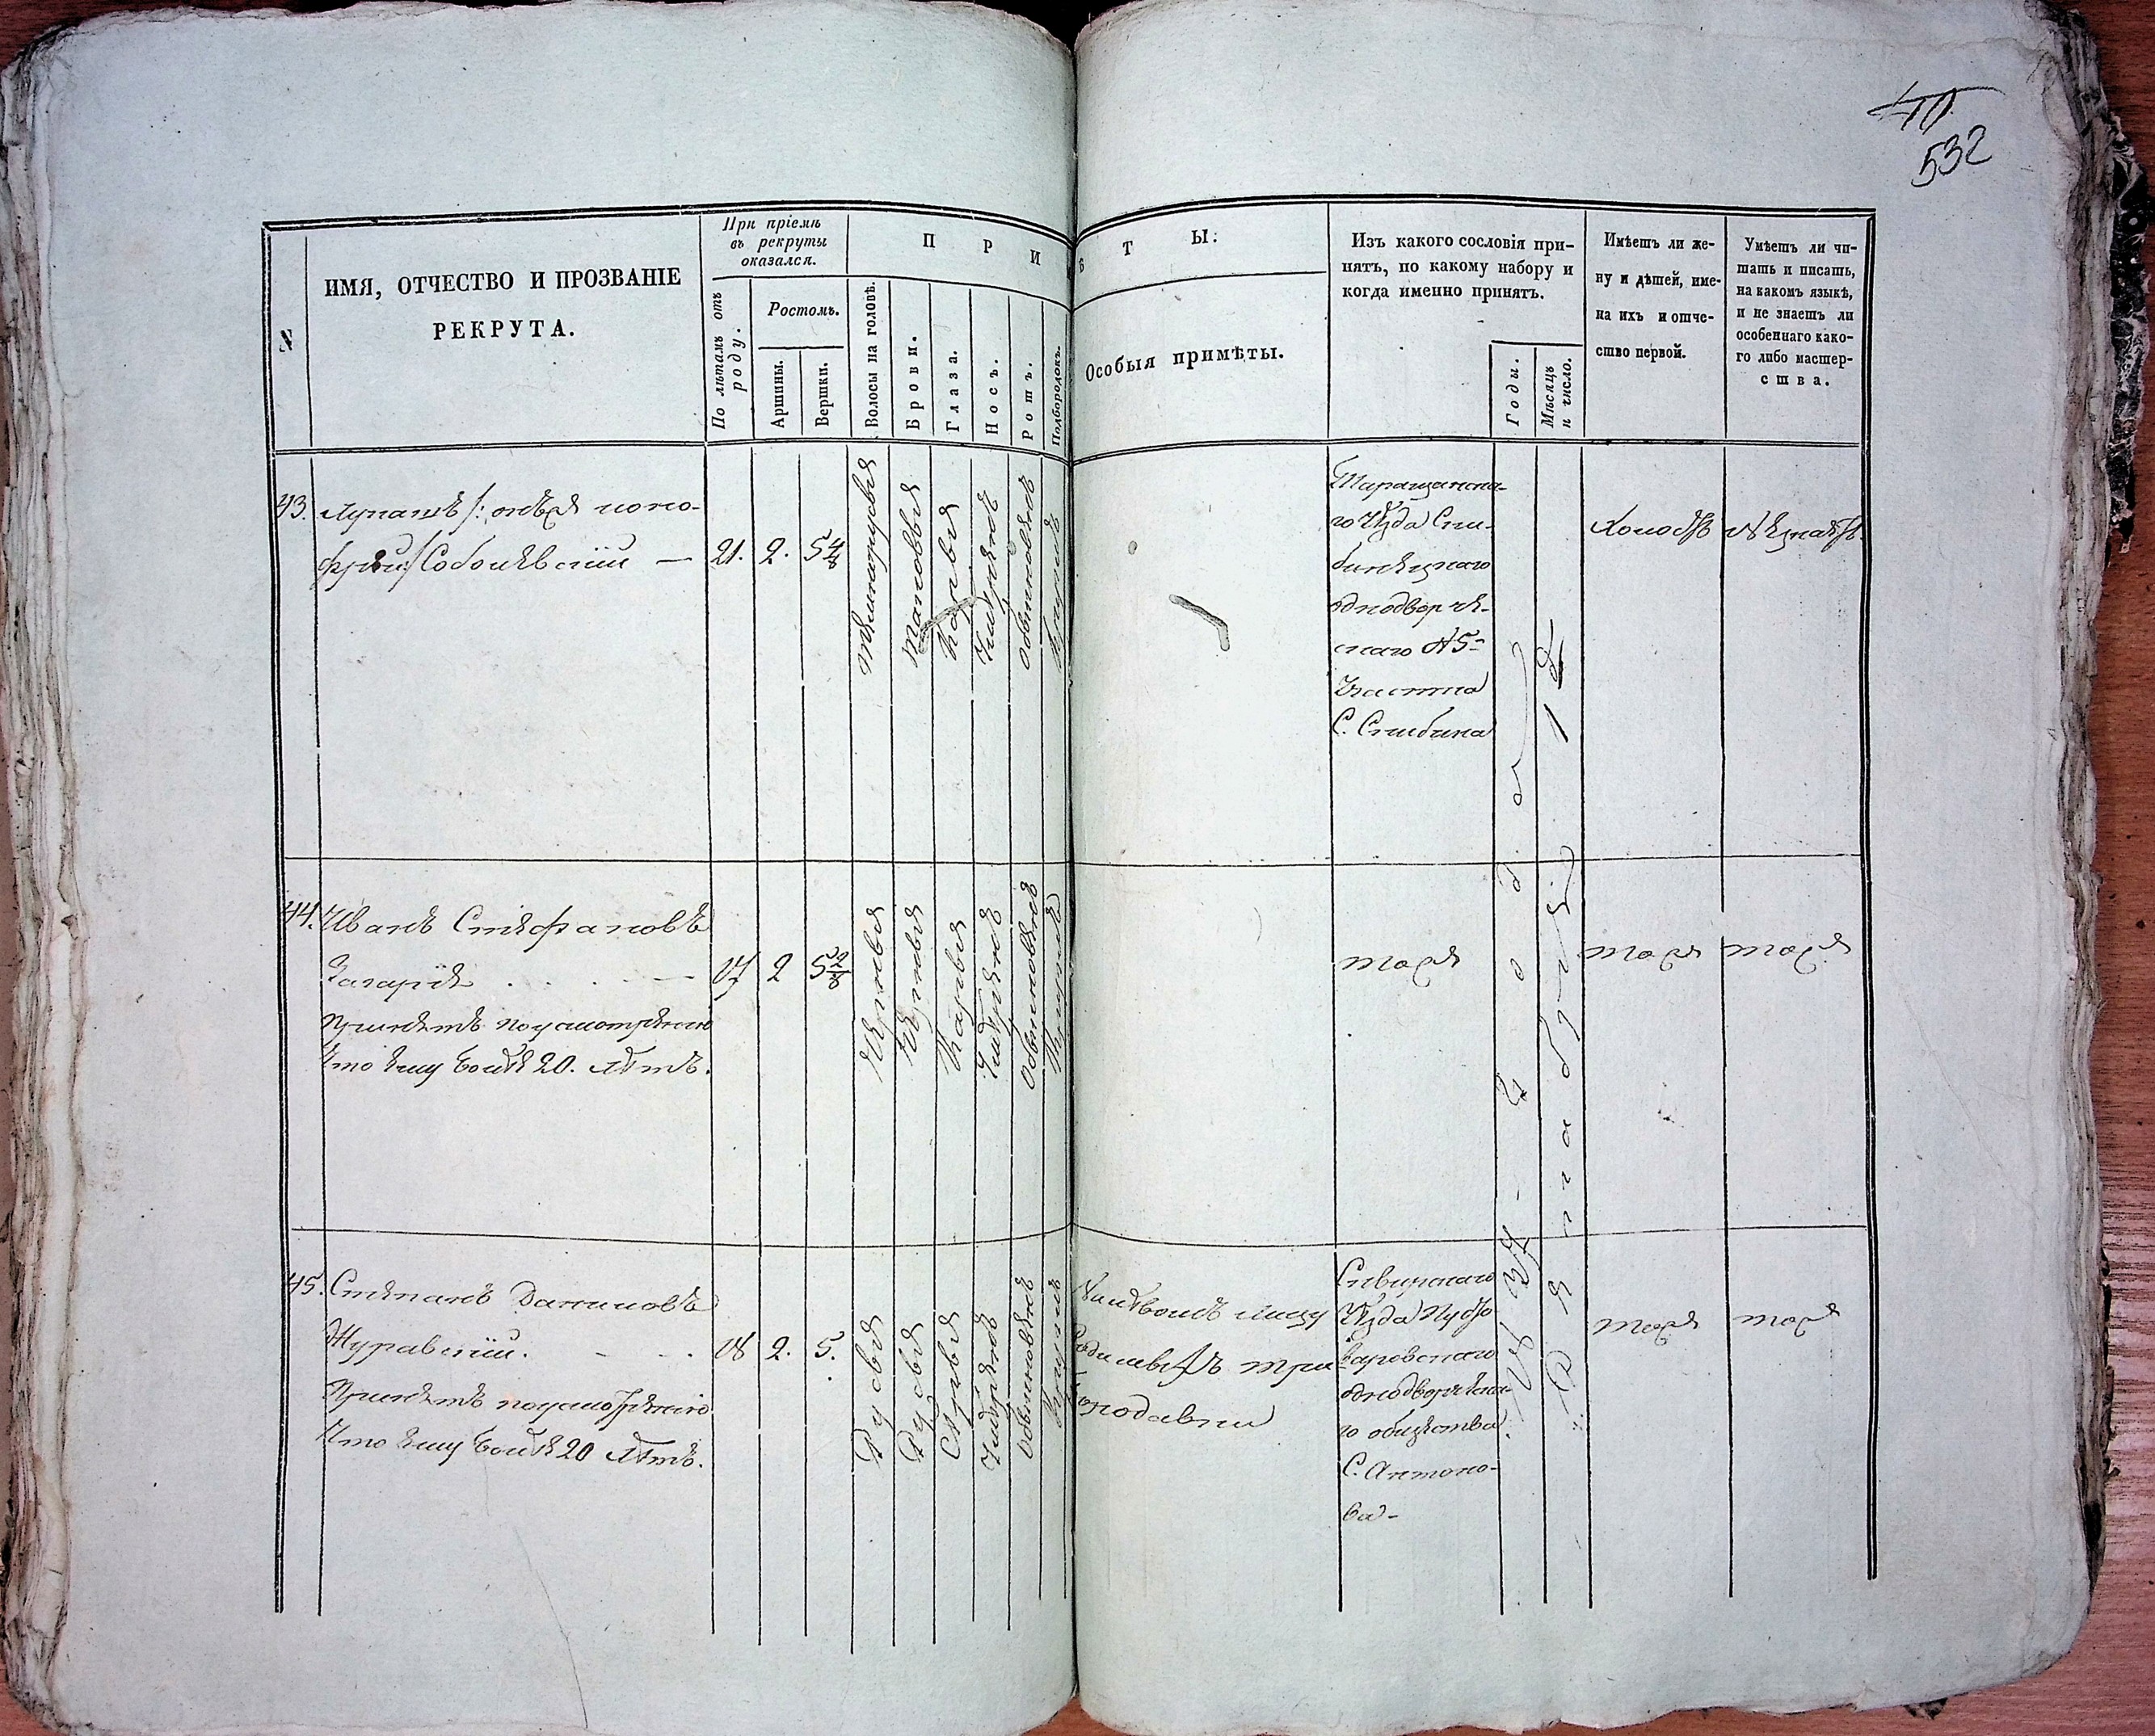 40
532
N
ИМЯ, ОТЧЕСТВО И ПРОЗВАНІЕ
РЕКРУТА.
При пріемѣ
въ рекруты
оказался.
По лѣтамъ отъ
роду.
Ростомъ.
Аршины.
Вершки.
ПРИ
Волосы на головѣ.
Брови.
Глаза.
Носъ.
Ротъ.
Подбородокъ.
Т Ы:
Особыя примѣты.
Изъ какого сословія при-
нятъ, по какому набору и
когда именно принятъ.
Годы.
Мѣсяцъ
и число.
Имѣетъ ли же-
ну и дѣтей, име-
на ихъ и отче-
ство первой.
Умѣетъ ли чи-
тать и писать,
на какомъ языкѣ,
и не знаетъ ли
особеннаго како-
го либо мастер-
ства.
43.
Лукашъ /:онъже
/Соболевскій —
21.
2.
5 4/8
темнорусыя
карыя
умѣренъ
обыкновенъ
круглъ
Таращанска-
го Уѣзда
однодворче-
скаго №5
Участка
С.
Холостъ
Незнаетъ.
44.
Иванъ Стефановъ
Принятъ поусмотренію
Что ему более 20. лѣтъ.
2
5 2/8
Черныя
Черныя
Карыя
Умѣренъ
Обыкновенъ
Круглъ
тоже
тоже
тоже
45.
Степанъ Даниловъ
Журавскій.
Принятъ поусмотренію
Что ему более 20 лѣтъ.
2.
5.
Русыя
Русыя
Серыя
Умѣренъ
Обыкновенъ
Круглъ
Налѣвомъ лицу
три
бородавки
Сквирскаго
Уѣзда
однодворческа-
го общества
С. Антоно-
ва -
Года
Генваря
тоже
тоже